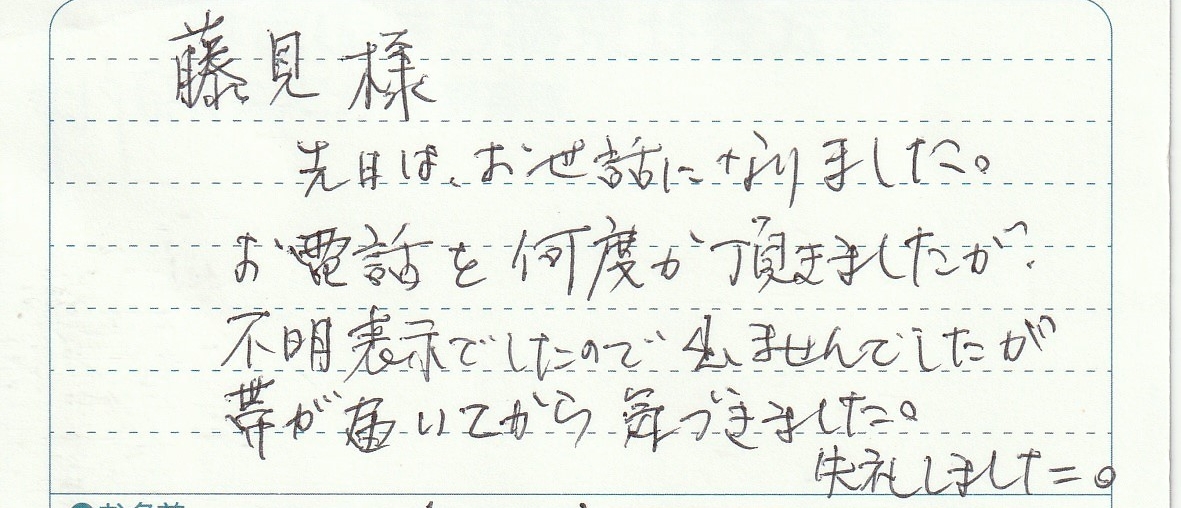 藤見様
先日は、お世話になりました。
お電話を何度か頂きましたが、
不明表示でしたので出ませんでしたが
帯が届いてから気づきました。
失礼しました。